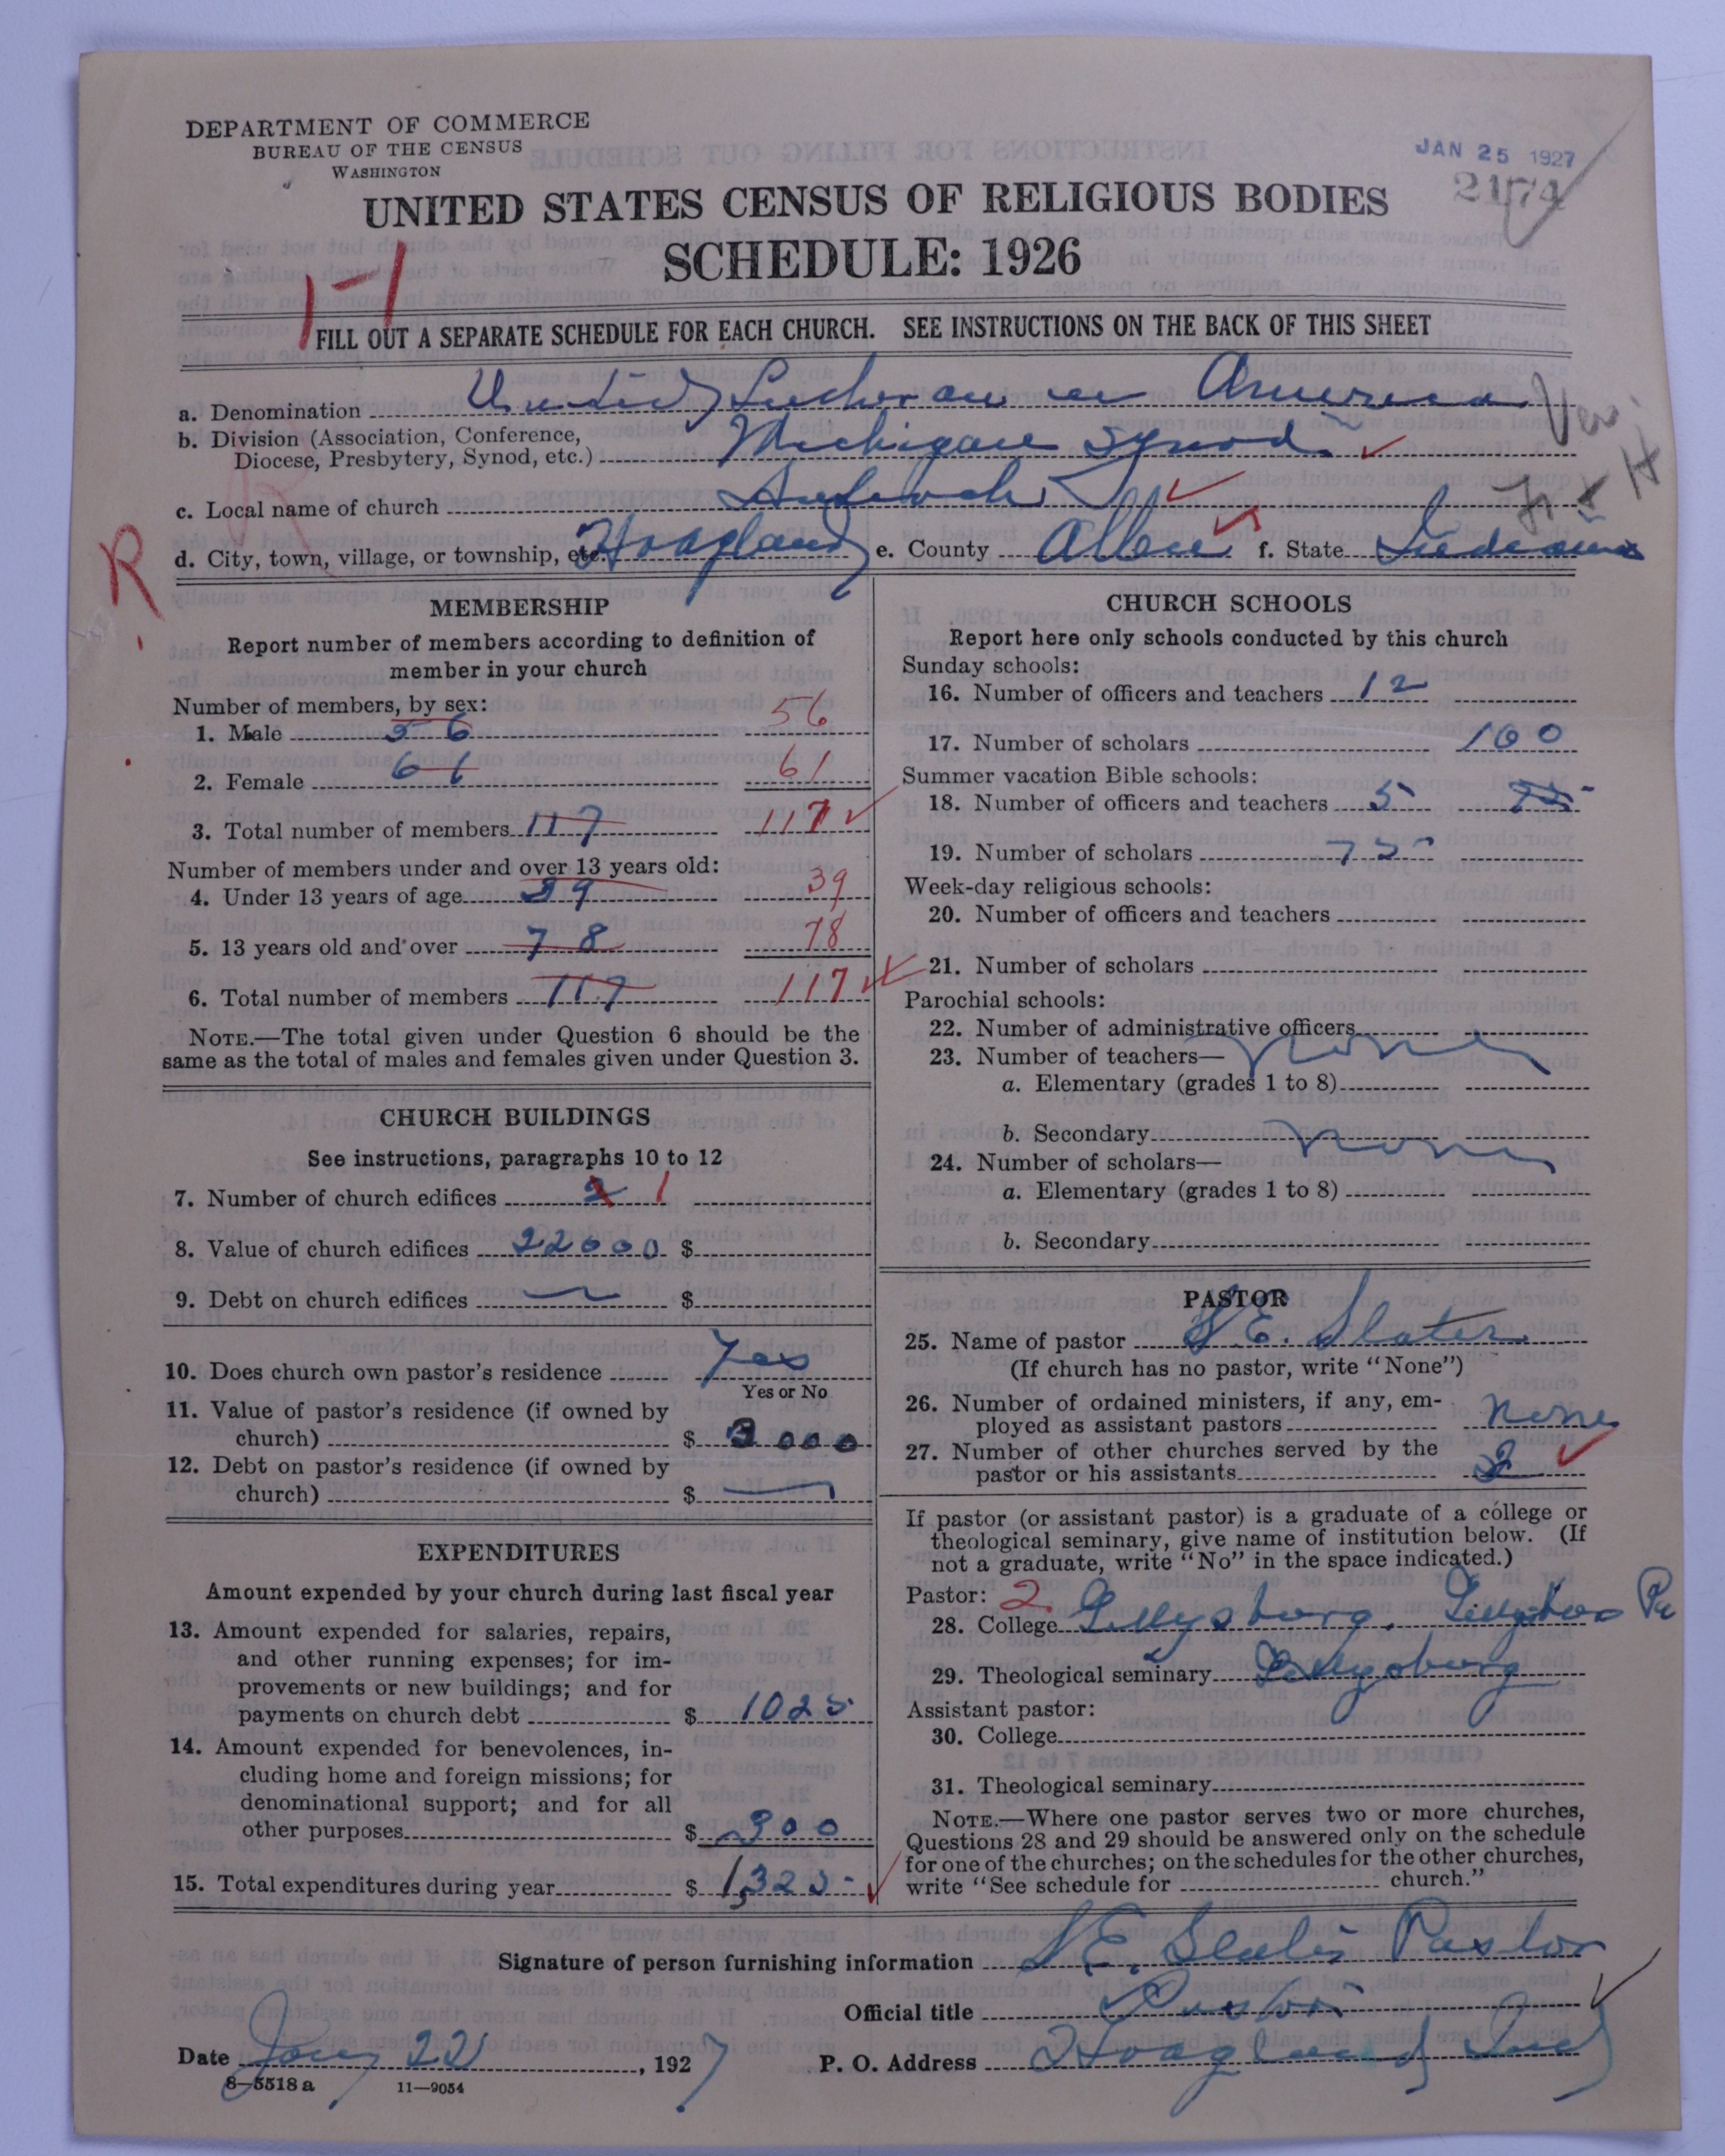 DEPARTMENT OF COMMERCE
BUREAU OF THE CENSUS
WASHINGTON
JAN 25 1927
2174
UNITED STATES CENSUS OF RELIGIOUS BODIES
SCHEDULE: 1926
1-1
FILL OUT A SEPARATE SCHEDULE FOR EACH CHURCH. SEE INSTRUCTIONS ON THE BACK OF THIS SHEET
a. Denomination United Lutheran in America
b. Division (Association, Conference,
Diocese, Presbytery, Synod, etc.) Michigan Synod
Ver.
c. Local name of church Antioch
d. City, town, village, or township, etc. Hoagland e. County Allen f. State Indiana
R
MEMBERSHIP
Report number of members according to definition of
member in your church
Number of members, by sex:
1. Male 56 56
2. Female 61 61
3. Total number of members 117 117
Number of members under and over 13 years old:
4. Under 13 years of age 39 39
5. 13 years old and over 78 78
6. Total number of members 117 117
NOTE.—The total given under Question 6 should be the
same as the total of males and females given under Question 3.
CHURCH BUILDINGS
See instructions, paragraphs 10 to 12
7. Number of church edifices 1
8. Value of church edifices 22000 $
9. Debt on church edifices — $
10. Does church own pastor's residence Yes
Yes or No
11. Value of pastor's residence (if owned by
church) $ 3000
12. Debt on pastor's residence (if owned by
church) $ —
EXPENDITURES
Amount expended by your church during last fiscal year
13. Amount expended for salaries, repairs,
and other running expenses; for im-
provements or new buildings; and for
payments on church debt $ 1025
14. Amount expended for benevolences, in-
cluding home and foreign missions; for
denominational support; and for all
other purposes $ 300
15. Total expenditures during year $ 1,325
CHURCH SCHOOLS
Report here only schools conducted by this church
Sunday schools:
16. Number of officers and teachers 12
17. Number of scholars 100
Summer vacation Bible schools:
18. Number of officers and teachers 5 75
19. Number of scholars 75
Week-day religious schools:
20. Number of officers and teachers
21. Number of scholars
Parochial schools:
22. Number of administrative officers
23. Number of teachers— none
a. Elementary (grades 1 to 8)
b. Secondary none
24. Number of scholars—
a. Elementary (grades 1 to 8)
b. Secondary
PASTOR
25. Name of pastor S. E. Slater
(If church has no pastor, write "None")
26. Number of ordained ministers, if any, em-
ployed as assistant pastors none
27. Number of other churches served by the
pastor or his assistants 2
If pastor (or assistant pastor) is a graduate of a college or
theological seminary, give name of institution below. (If
not a graduate, write "No" in the space indicated.)
Pastor: 2
28. College Gettysburg, Gettysburg Pa
29. Theological seminary Gettysburg
Assistant pastor:
30. College
31. Theological seminary
NOTE.—Where one pastor serves two or more churches,
Questions 28 and 29 should be answered only on the schedule
for one of the churches; on the schedules for the other churches,
write "See schedule for church."
Signature of person furnishing information S. E. Slater Pastor
Official title Pastor
Date Jany 22, 1927 P. O. Address Hoagland Ind
8—5518 a 11—9054